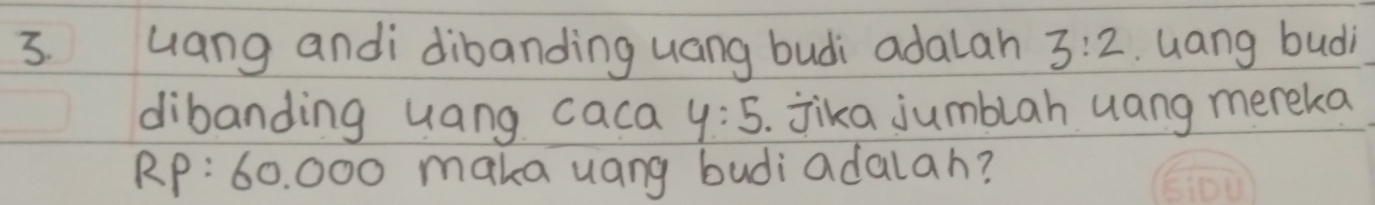 3. uang andi dibanding uang budi adalah 3:2. uang budi
dibanding uang caca 4:5. Jika jumblah uang mereka
RP: 60.000 maka uang budi adalah?
SiDU